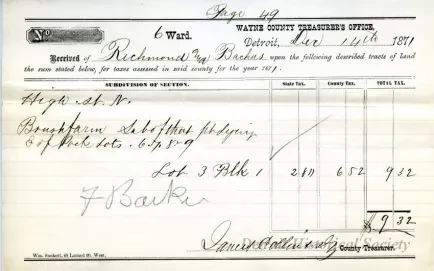 Page 49
No
6 Ward.
WAYNE COUNTY TREASURER'S OFFICE,
Detroit, Dec 14th 1871
Received of Richmond & Backus upon the following described tracts of land
the sum stated below, for taxes assessed in said county for the year 1871.
SUBDIVISION OF SECTION. STATE TAX. COUNTY TAX. TOTAL TAX.
High St. N.
farm Sub of that pt lying
of lots. 6
Lot 3 Blk 1 2 80 6 52 9 32
F Barker
$ 9 32
County Treasurer.
Wm. Sackett, 48 Larned St. West.
Society